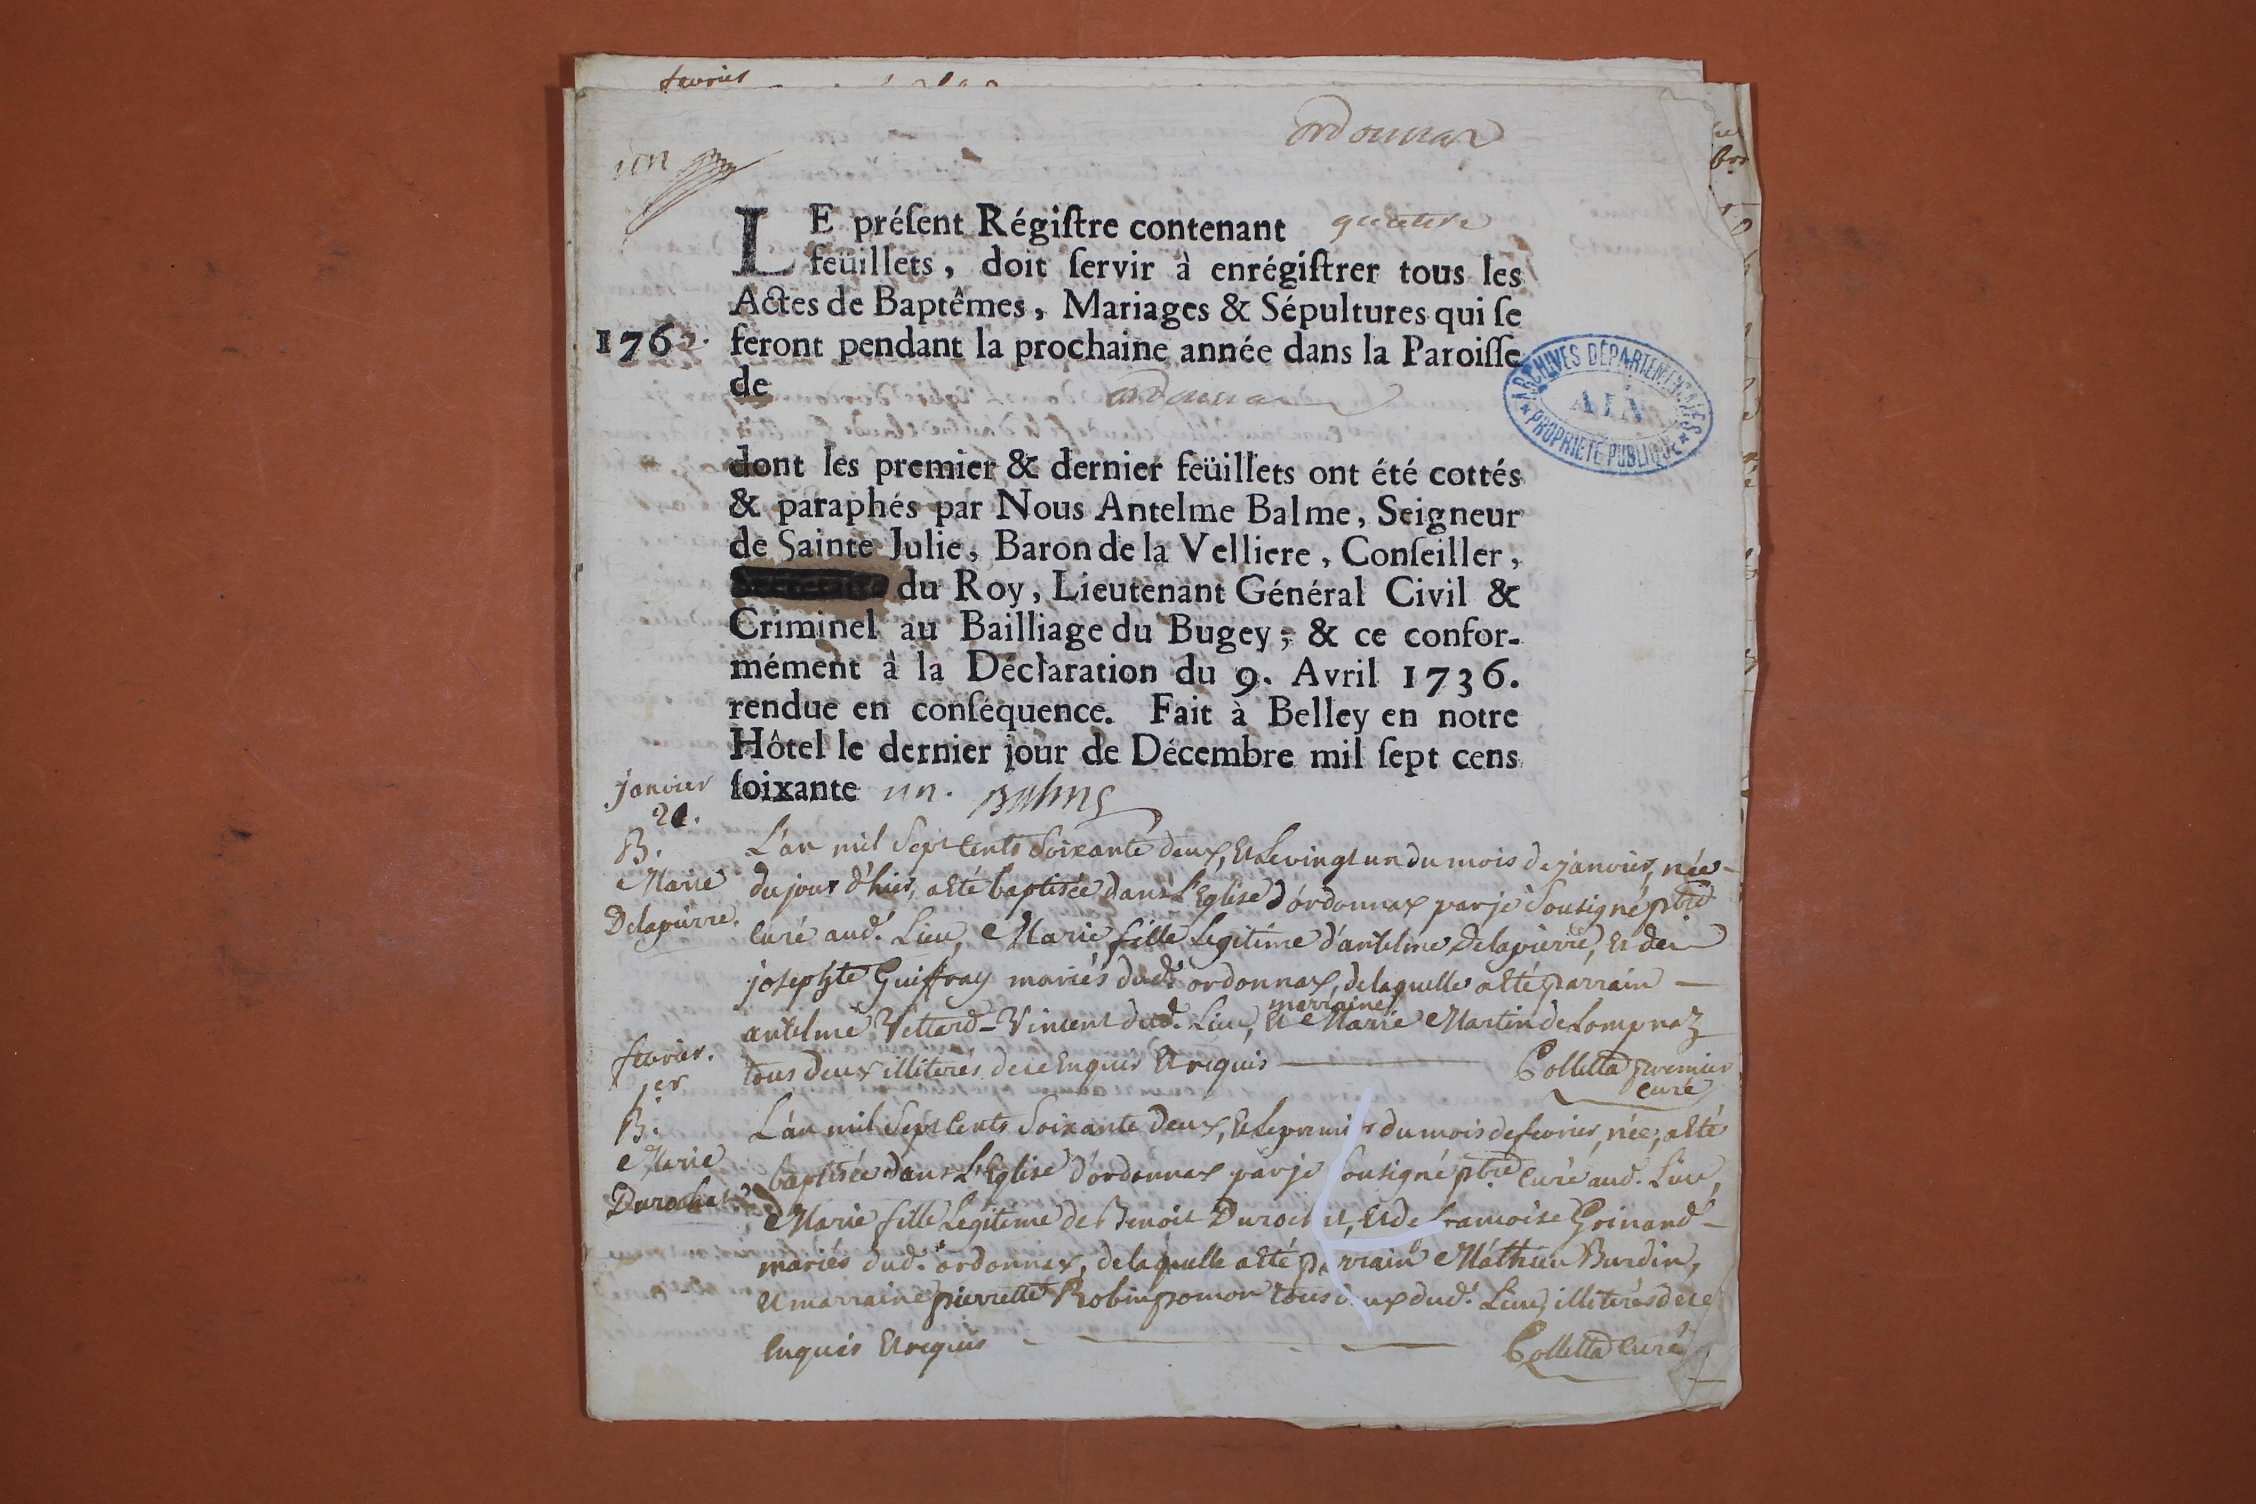 fevrier
ordonnax
un
LE préſent Régiſtre contenant quatre
feüillets, doit ſervir à enrégiſtrer tous les
Actes de Baptêmes, Mariages & Sépultures qui ſe
1762. feront pendant la prochaine année dans la Paroiſſe
de ordonnax
ARCHIVES DÉPARTEMENTALES
AIN
PROPRIÉTÉ PUBLIQUE
dont les premier & dernier feüillets ont été cottés
& paraphés par Nous Antelme Balme, Seigneur
de Sainte Julie, Baron de la Velliere, Conſeiller,
du Roy, Lieutenant Général Civil &
Criminel au Bailliage du Bugey; & ce confor-
mément à la Déclaration du 9. Avril 1736.
rendue en conſéquence. Fait à Belley en notre
Hôtel le dernier jour de Décembre mil ſept cens
ſoixante un. Balme
janvier
21.
B.
Marie
Delapierre.
L'an mil Sept Cents Soixante deux, et le vingt un du mois de janvier, née
du jour d'hier, a été baptisée dans L'Eglise d'ordonnax par je Sousigné ptre
Curé aud. Lieu, Marie fille Legitime d'antelme Delapierre, et de
josephte Guiffray mariés dud. ordonnax, de laquelle a été parrain
antelme Vettard-Vincent dud. Lieu, et marraine Marie Martin de Lompnaz
tous deux illiterés de ce Enquis et requis Colletta premier
Curé
fevrier.
1.er
B.
Marie
Durochat
L'an mil Sept Cents Soixante deux, et le premier du mois de fevrier, née, a été
baptisée dans L'Eglise d'ordonnax par je Sousigné ptre Curé aud. Lieu,
Marie fille Legitime de Benoit Durochat, et de francoise Grinand
mariés dud. ordonnax, de laquelle a été parrain Mathieu Burdin,
et marraine pierrette Robin pomon tous deux dud. Lieu, illiterés de ce
Enquis et requis Colletta Curé